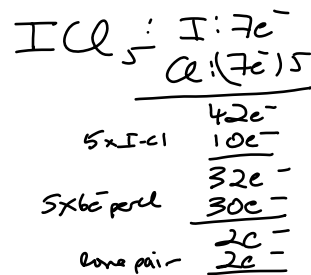 ICl₅: I: 7e⁻
Cl: (7e⁻)5
42e⁻
5xI-Cl 10e⁻
32e⁻
5x6e⁻ per Cl 30e⁻
2e⁻
lone pair 2e⁻